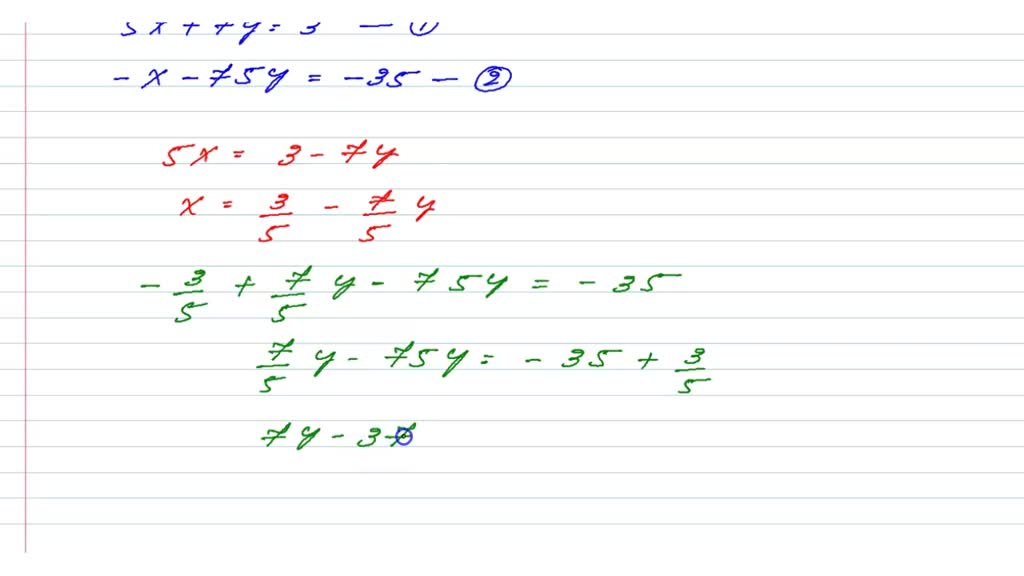 5x + 7y = 3 — ①
-x - 75y = -35 — ②
5x = 3 - 7y
x = 3/5 - 7/5 y
-3/5 + 7/5 y - 75y = -35
7/5 y - 75y = -35 + 3/5
7y - 37